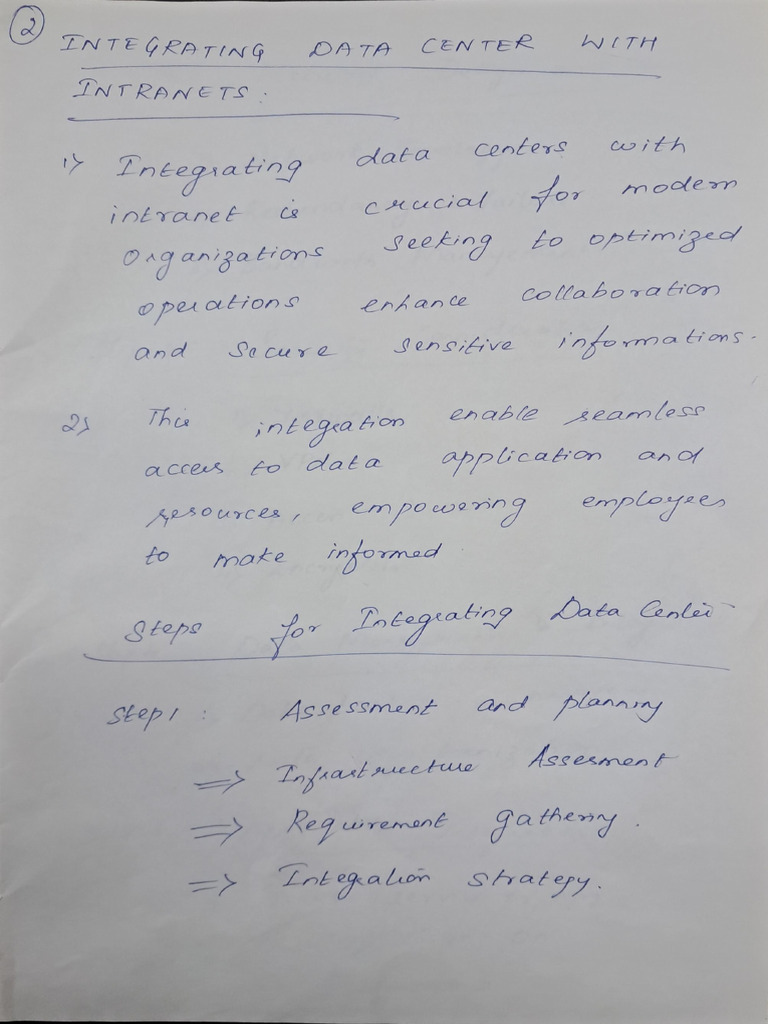 2
INTEGRATING DATA CENTER WITH
INTRANETS :
1) Integrating data centers with
intranet is crucial for modern
Organizations seeking to optimized
operations enhance collaboration
and secure sensitive informations.
2) This integration enable seamless
access to data application and
resources, empowering employees
to make informed
Steps for Integrating Data Center
Step 1 : Assessment and planning
⇒ Infrastructure Assesment
⇒ Requirement gathering.
⇒ Integration strategy.